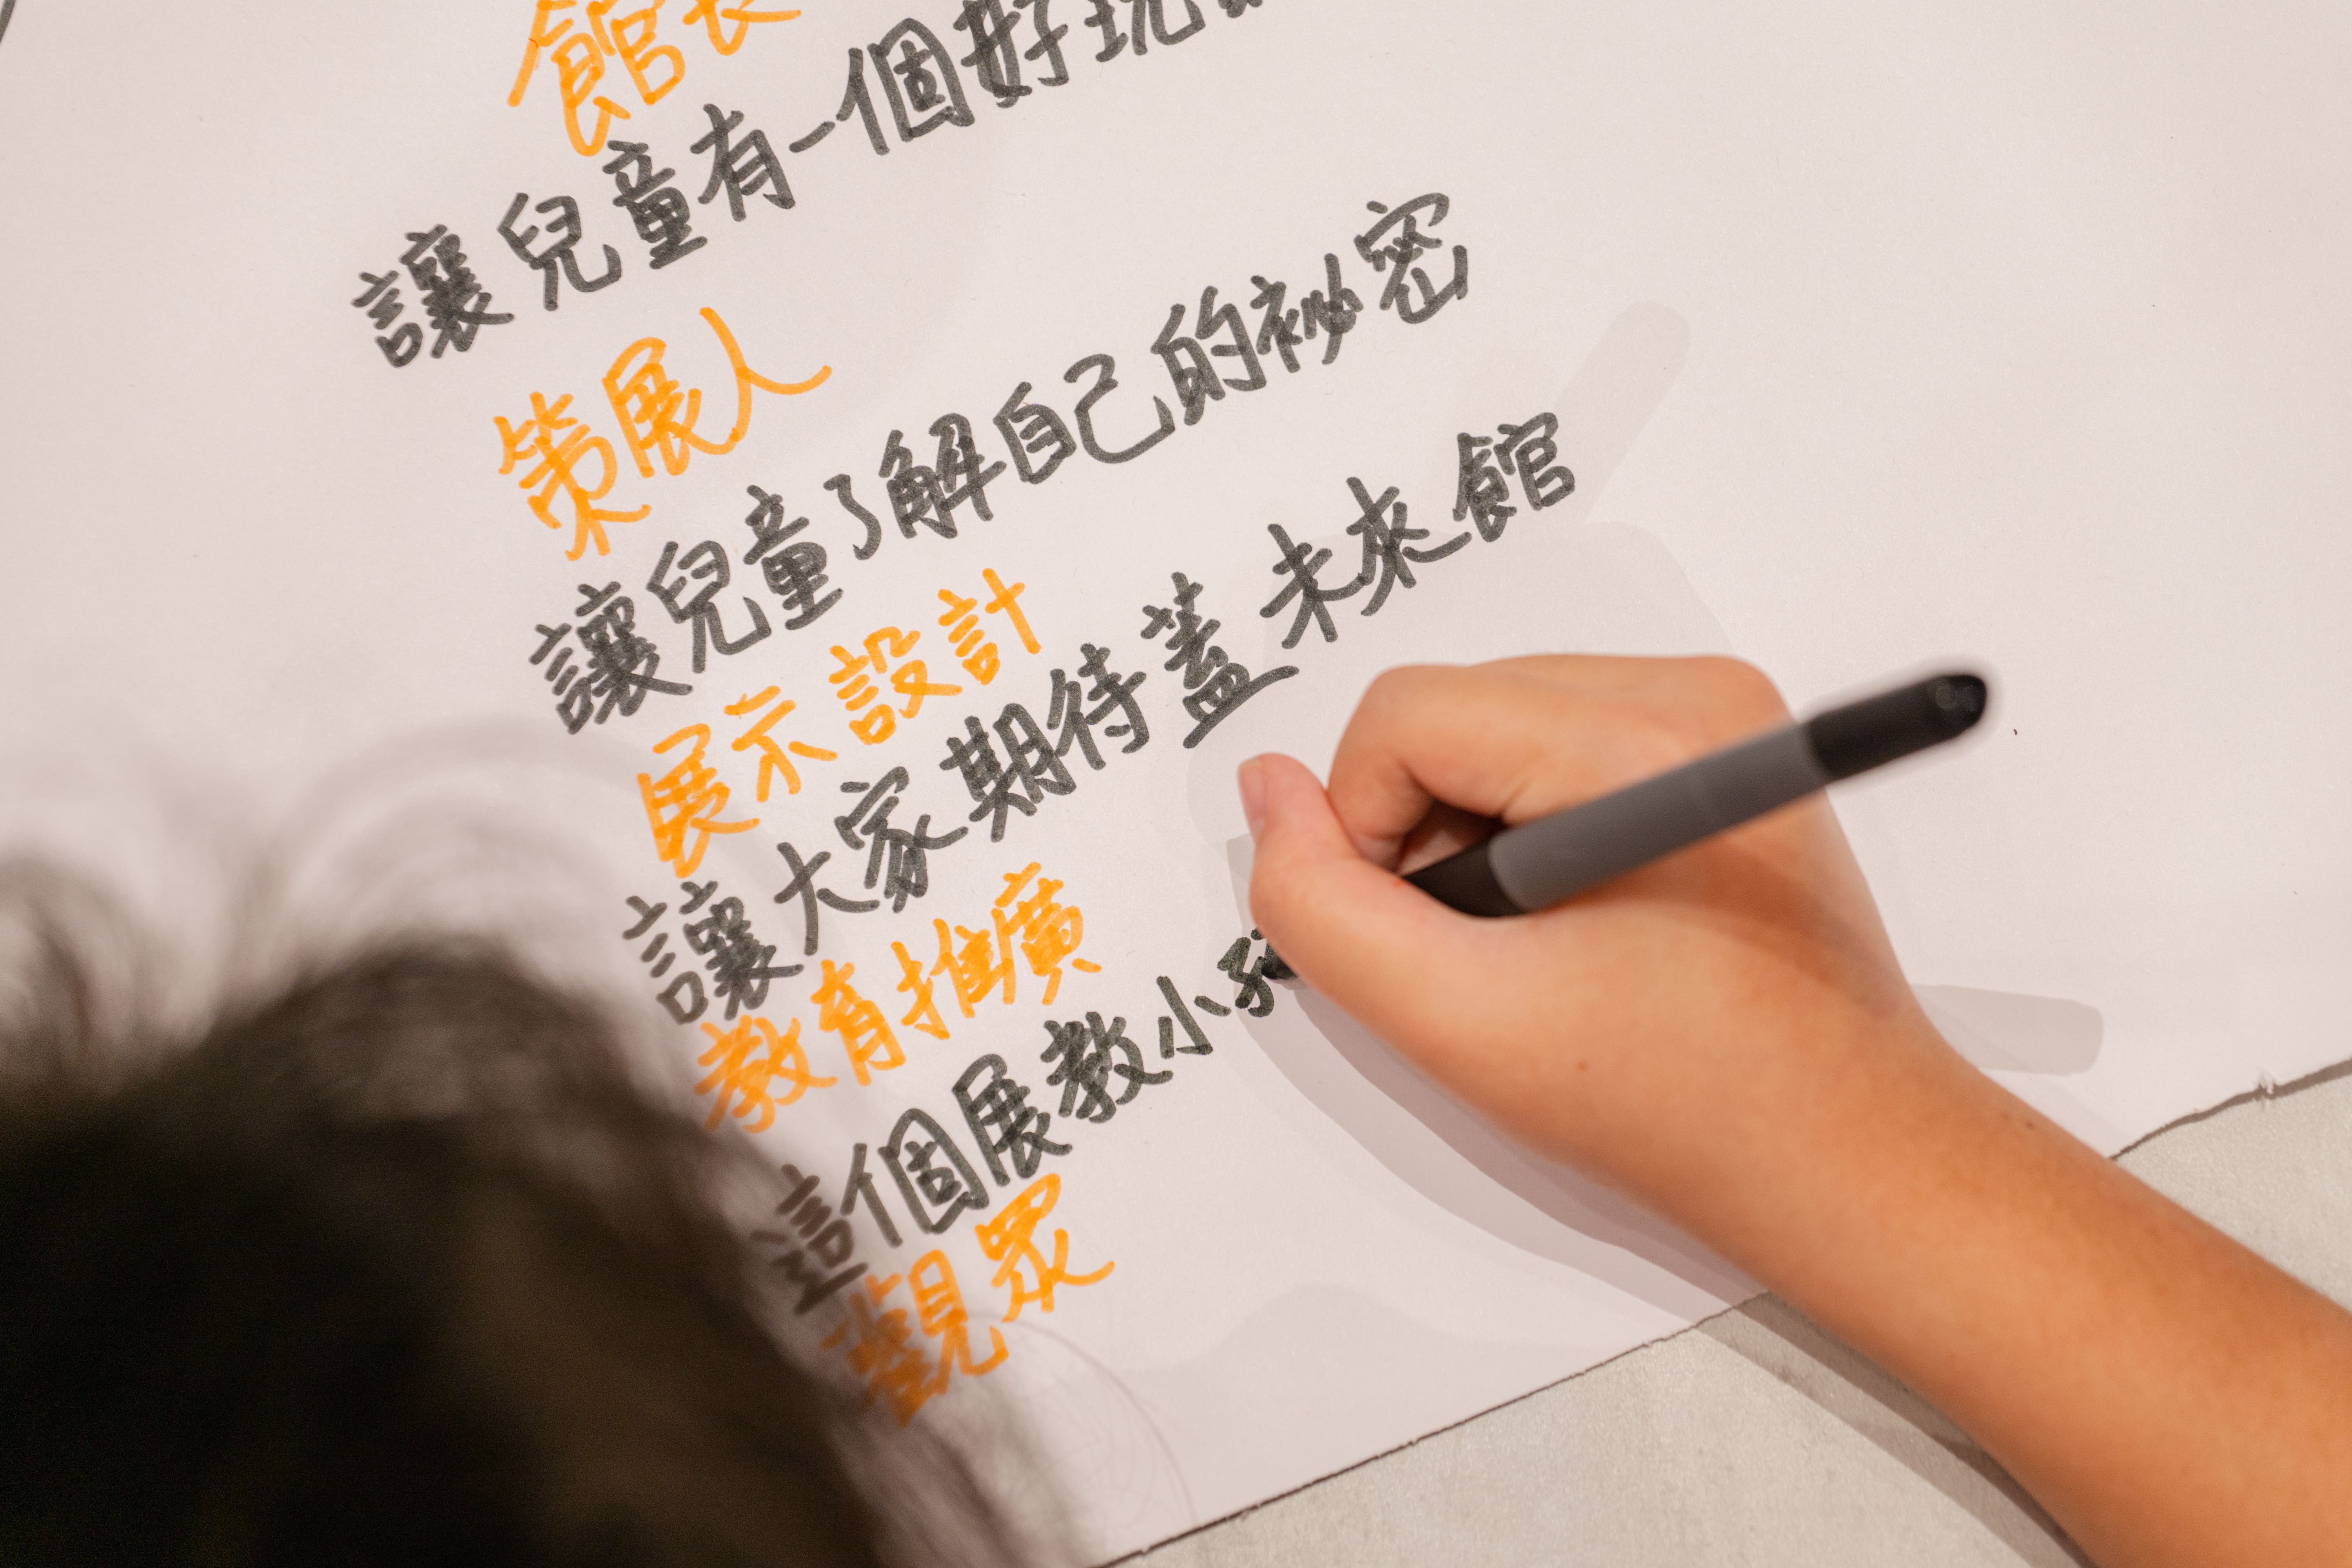 館長
讓兒童有一個好玩
策展人
讓兒童了解自己的祕密
展示設計
讓大家期待蓋未來館
教育推廣
這個展教小孩
觀眾